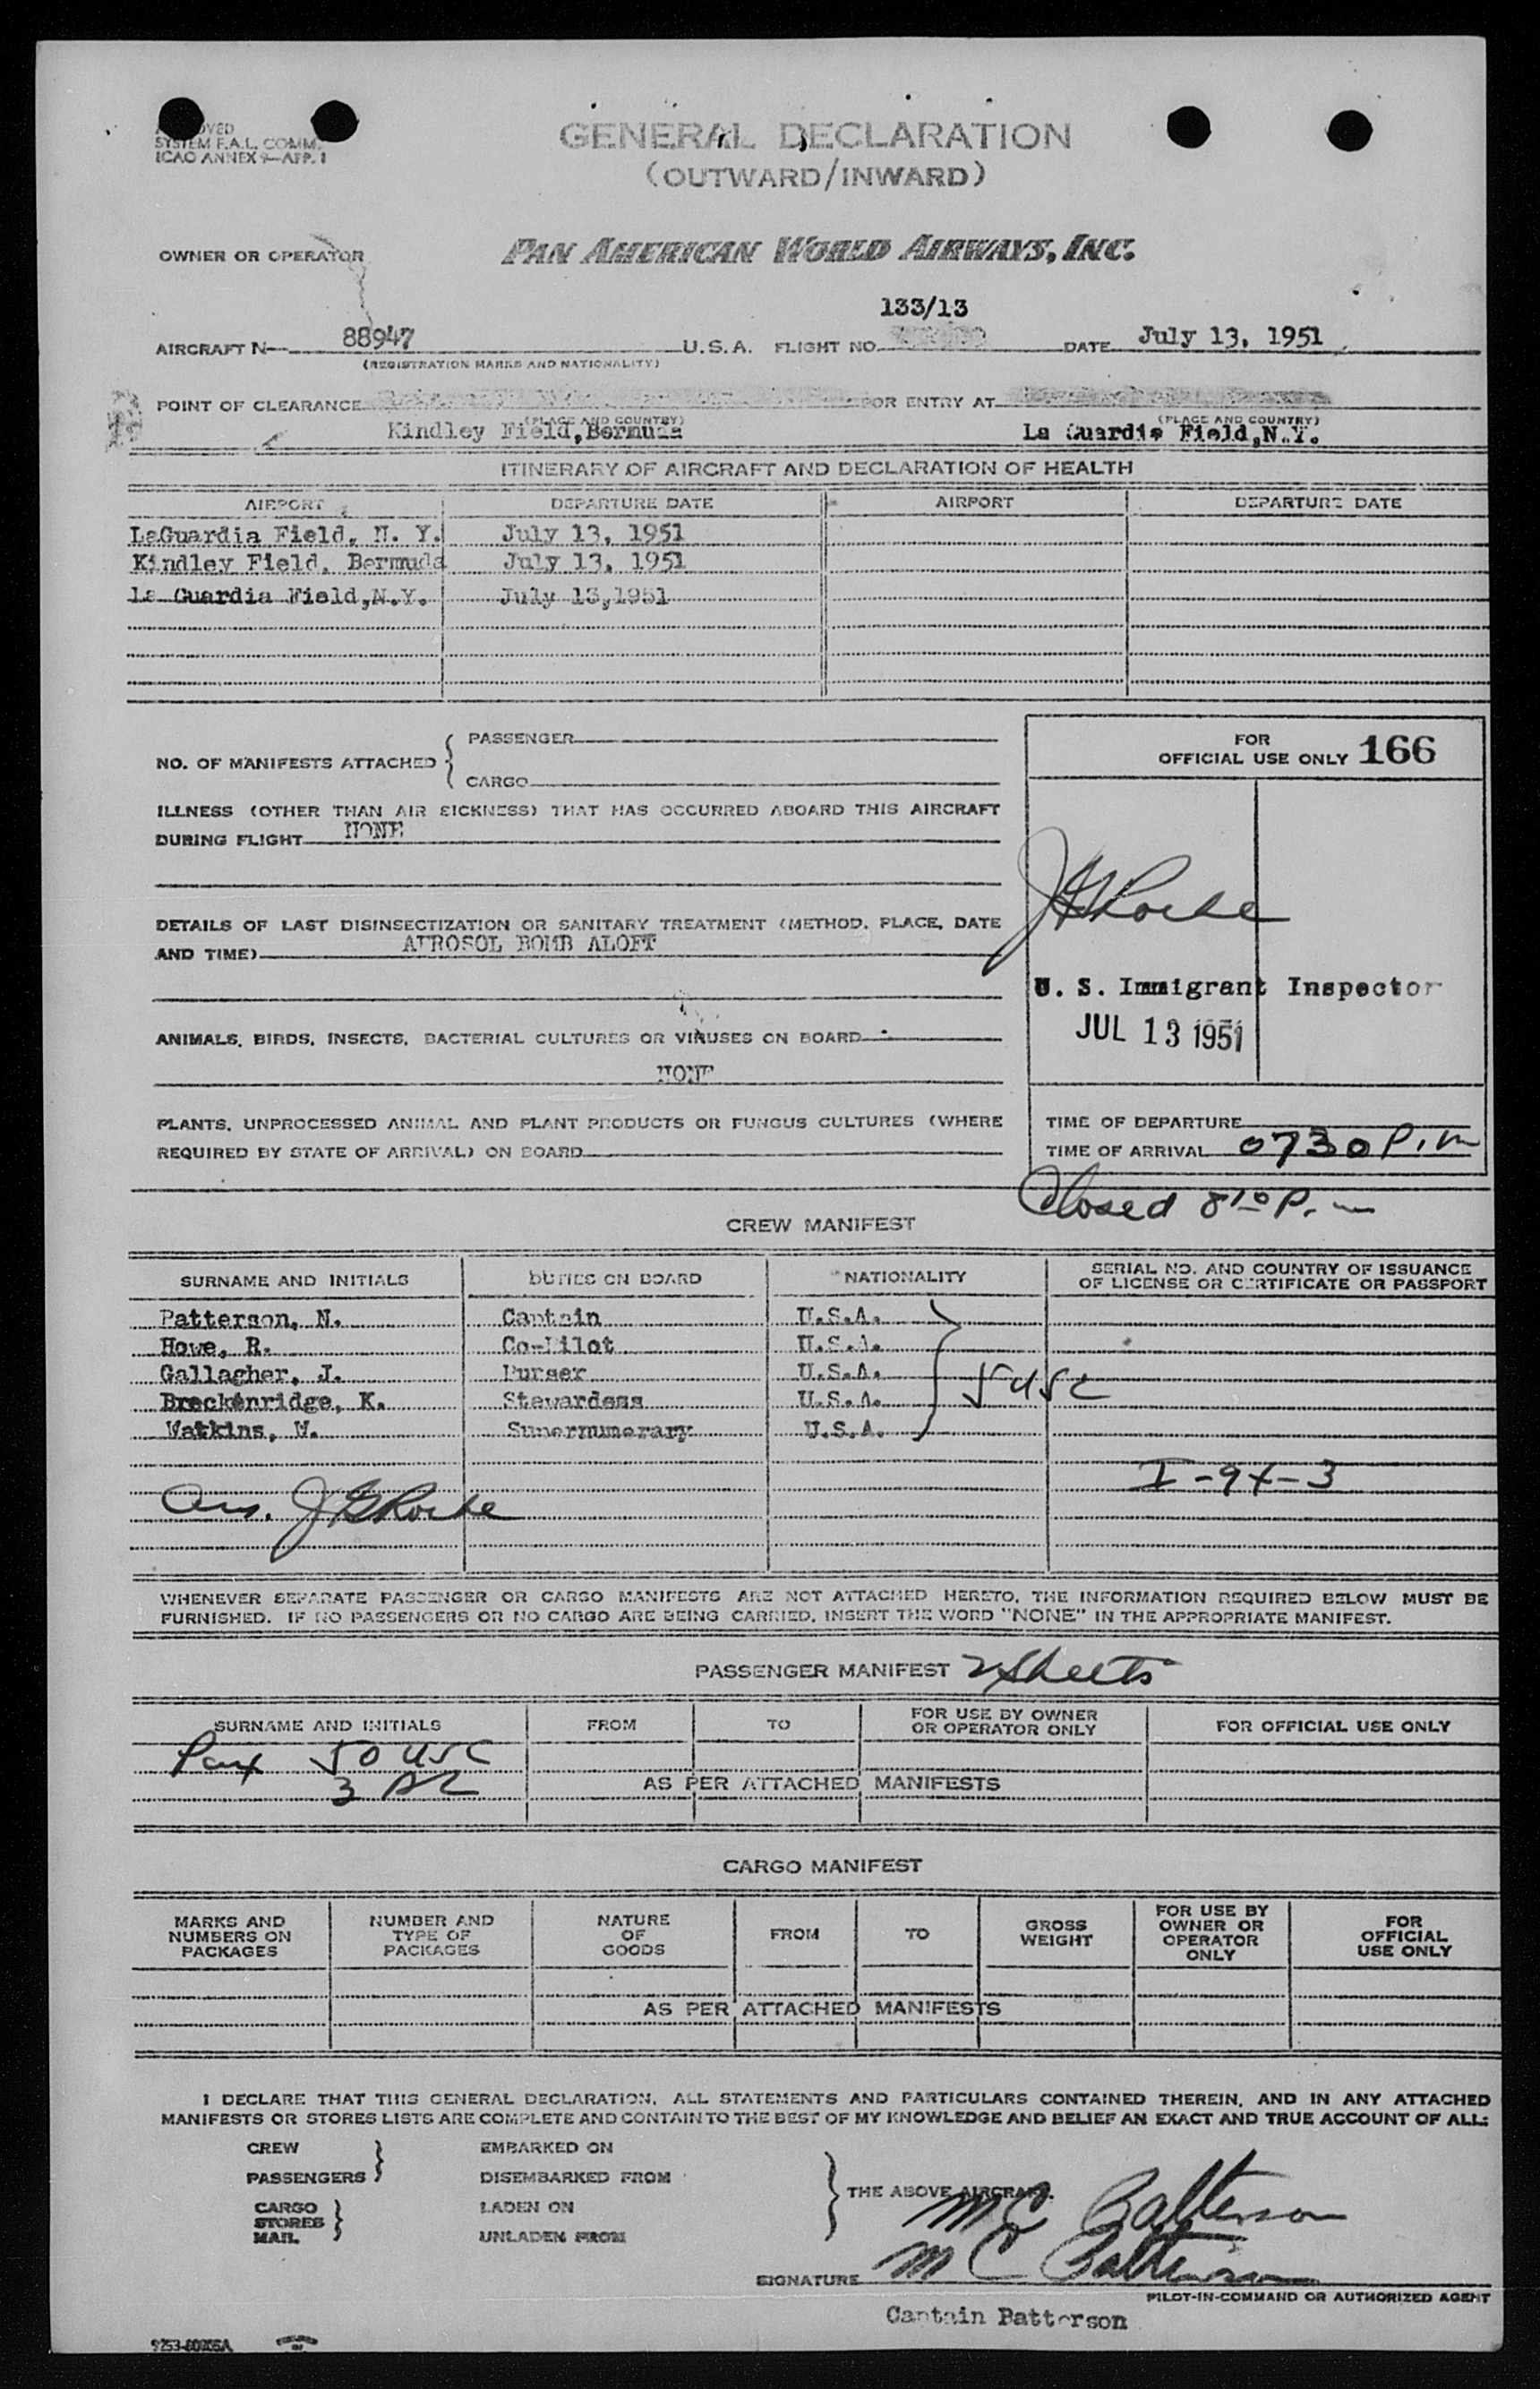 SYSTEM F.A.L. COMM.
ICAO ANNEX 9—APP. 1
GENERAL DECLARATION
(OUTWARD/INWARD)
OWNER OR OPERATOR
PAN AMERICAN WORLD AIRWAYS, INC.
133/13
AIRCRAFT N— 88947 U.S.A. FLIGHT NO. DATE July 13, 1951
(REGISTRATION MARKS AND NATIONALITY)
POINT OF CLEARANCE FOR ENTRY AT
(PLACE AND COUNTRY) (PLACE AND COUNTRY)
Kindley Field,Bermuda La Guardia Field,N.Y.
ITINERARY OF AIRCRAFT AND DECLARATION OF HEALTH
AIRPORT DEPARTURE DATE AIRPORT DEPARTURE DATE
LaGuardia Field, N. Y. July 13, 1951
Kindley Field, Bermuda July 13, 1951
La Guardia Field,N.Y. July 13,1951
NO. OF MANIFESTS ATTACHED { PASSENGER
CARGO
FOR
OFFICIAL USE ONLY 166
ILLNESS (OTHER THAN AIR SICKNESS) THAT HAS OCCURRED ABOARD THIS AIRCRAFT
DURING FLIGHT NONE
DETAILS OF LAST DISINSECTIZATION OR SANITARY TREATMENT (METHOD, PLACE, DATE
AND TIME) AEROSOL BOMB ALOFT
U. S. Immigrant Inspector
JUL 13 1951
ANIMALS, BIRDS, INSECTS, BACTERIAL CULTURES OR VIRUSES ON BOARD
NONE
PLANTS, UNPROCESSED ANIMAL AND PLANT PRODUCTS OR FUNGUS CULTURES (WHERE
REQUIRED BY STATE OF ARRIVAL) ON BOARD
TIME OF DEPARTURE
TIME OF ARRIVAL 0730 P.m
Closed 810 P.m
CREW MANIFEST
SURNAME AND INITIALS DUTIES ON BOARD NATIONALITY SERIAL NO. AND COUNTRY OF ISSUANCE
OF LICENSE OR CERTIFICATE OR PASSPORT
Patterson, N. Captain U.S.A.
Howe, R. Co-Pilot U.S.A.
Gallagher, J. Purser U.S.A.
Breckenridge, K. Stewardess U.S.A.
Watkins, W. Supernumerary U.S.A.
5 USC
I-94-3
WHENEVER SEPARATE PASSENGER OR CARGO MANIFESTS ARE NOT ATTACHED HERETO, THE INFORMATION REQUIRED BELOW MUST BE
FURNISHED. IF NO PASSENGERS OR NO CARGO ARE BEING CARRIED, INSERT THE WORD "NONE" IN THE APPROPRIATE MANIFEST.
PASSENGER MANIFEST 2 Sheets
SURNAME AND INITIALS FROM TO FOR USE BY OWNER
OR OPERATOR ONLY FOR OFFICIAL USE ONLY
Pax 50 USC
3 AL
AS PER ATTACHED MANIFESTS
CARGO MANIFEST
MARKS AND
NUMBERS ON
PACKAGES
NUMBER AND
TYPE OF
PACKAGES
NATURE
OF
GOODS
FROM
TO
GROSS
WEIGHT
FOR USE BY
OWNER OR
OPERATOR
ONLY
FOR
OFFICIAL
USE ONLY
AS PER ATTACHED MANIFESTS
I DECLARE THAT THIS GENERAL DECLARATION, ALL STATEMENTS AND PARTICULARS CONTAINED THEREIN, AND IN ANY ATTACHED
MANIFESTS OR STORES LISTS ARE COMPLETE AND CONTAIN TO THE BEST OF MY KNOWLEDGE AND BELIEF AN EXACT AND TRUE ACCOUNT OF ALL:
CREW EMBARKED ON
PASSENGERS DISEMBARKED FROM
CARGO LADEN ON
STORES
MAIL UNLADEN FROM
THE ABOVE AIRCRAFT.
M C Patterson
SIGNATURE M C Patterson
PILOT-IN-COMMAND OR AUTHORIZED AGENT
Captain Patterson